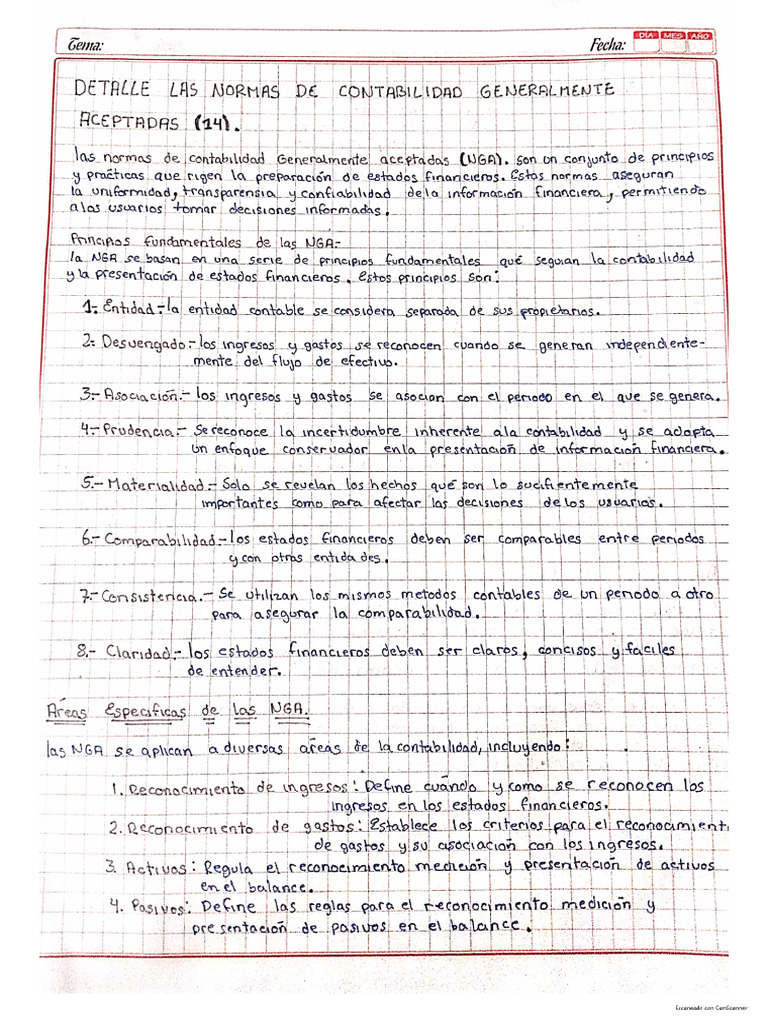 Tema:
Fecha:
DÍA MES AÑO
DETALLE LAS NORMAS DE CONTABILIDAD GENERALMENTE
ACEPTADAS (14).
las normas de contabilidad Generalmente aceptadas (NGA). son un conjunto de principios
y practicas que rigen la preparación de estados financieros. Estas normas aseguran
la uniformidad, transparensia y confiabilidad de la información financiera, permitiendo
a las usuarios tomar decisiones informadas.
Principios fundamentales de las NGA.-
la NGA se basan en una serie de principios fundamentales qué seguian la contabilidad
y la presentación de estados financieros. Estos principios son:
1.- Entidad.- la entidad contable se considera separada de sus propietarios.
2.- Desvengado.- los ingresos y gastos se reconocen cuando se generan independiente-
mente del flujo de efectivo.
3.- Asociación.- los ingresos y gastos se asocion con el periodo en el que se genera.
4.- Prudencia.- Se reconoce la incertidumbre inherente a la contabilidad y se adopta
un enfoque conservador en la presentación de información financiera.
5.- Materialidad.- Solo se revelan los hechos qué son lo sucifientemente
importantes como para afectar las decisiones de los usuarios.
6.- Comparabilidad.- los estados financieros deben ser comparables entre periodos
y con otras entidades.
7.- Consistencia.- Se utilizan los mismos metodos contables de un periodo a otro
para asegurar la comparabilidad.
8.- Claridad.- los estados financieros deben ser claros, concisos y faciles
de entender.
Áreas Especificas de las NGA.
las NGA se aplican a diversas areas de la contabilidad, incluyendo:
1. Reconocimiento de ingresos: Define cuándo y como se reconocen los
ingresos en los estados financieros.
2. Reconocimiento de gastos: Establece los criterios para el reconocimient
de gastos y su asociación con los ingresos.
3. Activos: Regula el reconocimiento medición y presentación de activos
en el balance.
4. Pasivos: Define las reglas para el reconocimiento medición y
presentación de pasivos en el balance.
Escaneado con CamScanner